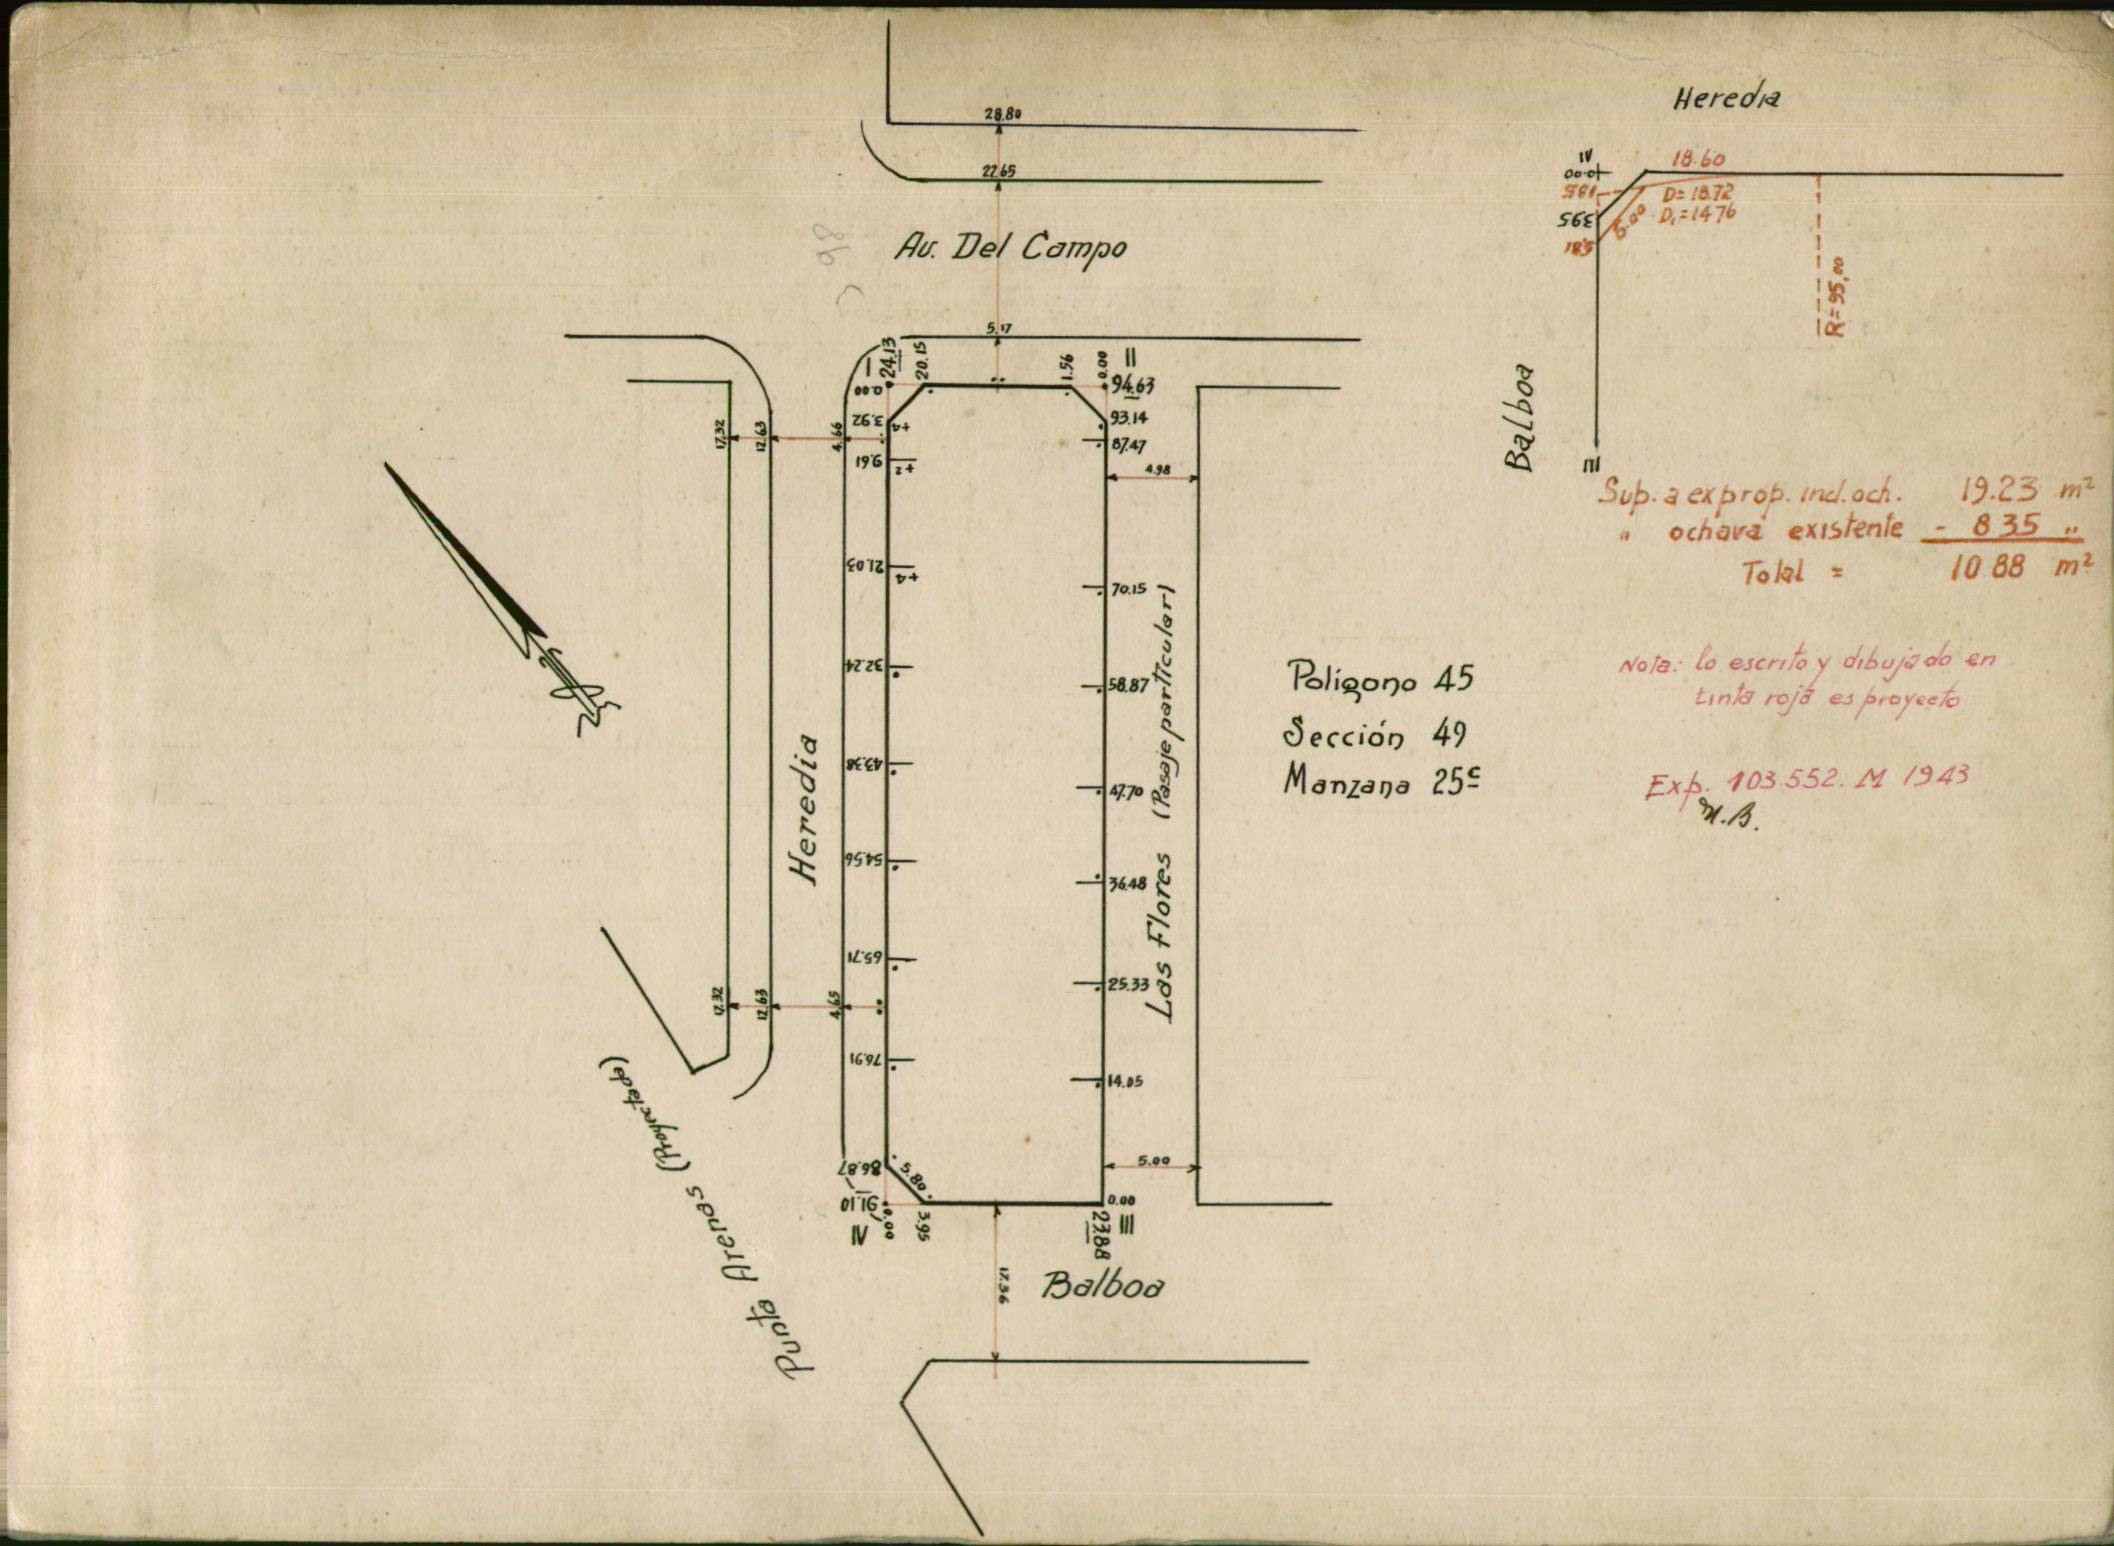 28.80
22.65
Av. Del Campo
5.17
I
24.13
20.15
1.56
0.00
II
0.00
94.63
3.92
+4
93.14
87.47
17.32
12.63
4.66
9.61
+2
4.98
21.03
+4
70.15
32.24
58.87
43.38
47.70
54.56
36.48
65.71
25.33
17.32
12.63
4.65
76.91
14.05
86.87
5.80
5.00
91.10
0.00
3.95
0.00
23.88
IV
III
17.36
Heredia
Las Flores (Pasaje particular)
Balboa
Punta Arenas (Proyectada)
Poligono 45
Sección 49
Manzana 25c
Heredia
IV
0.00
18.60
1.95
D=18.72
3.95
6.00
D1=14.76
5.81
R=95,00
Balboa
III
Sup. a exprop. incl. och. 19.23 m²
" ochava existente - 8.35 "
Total = 10.88 m²
Nota: lo escrito y dibujado en
tinta roja es proyecto
Exp. 103.552. M 1943
M.B.